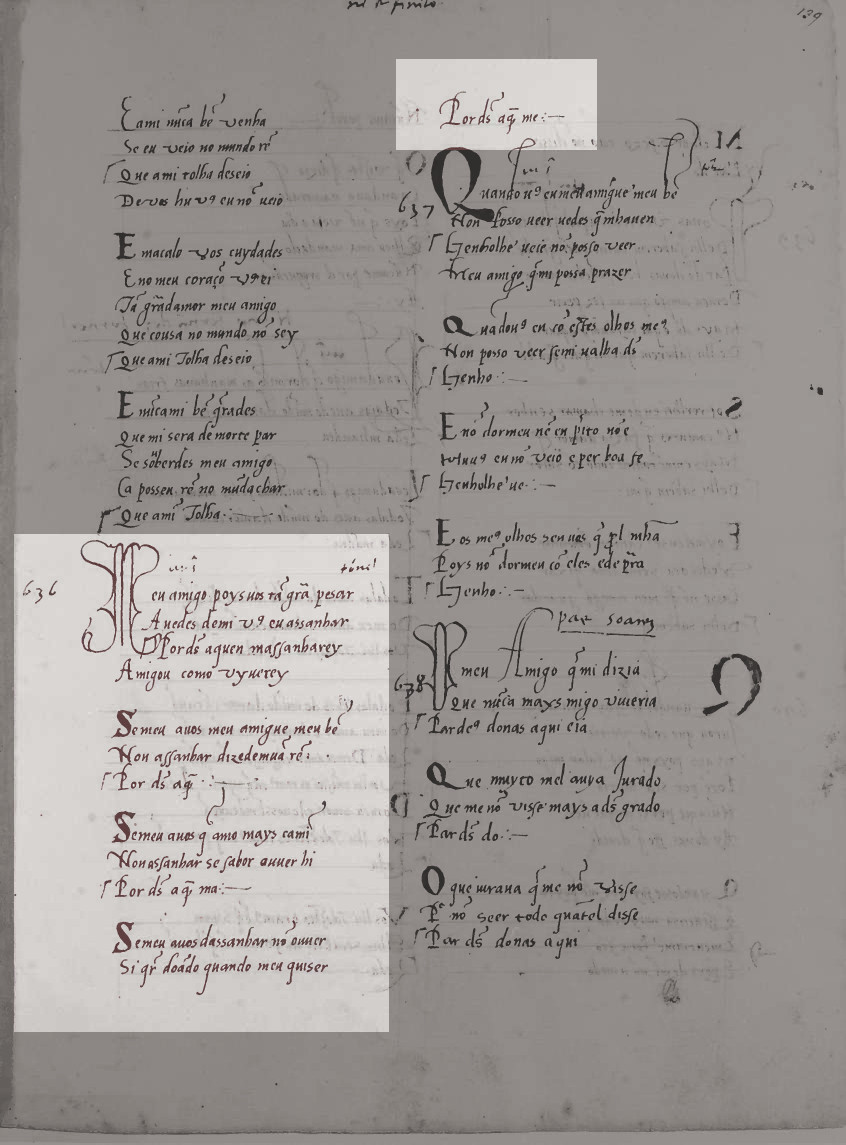 E ami nũca bẽ venha
Se eu veio no mundo rẽ
Que ami tolha deseio
De vos hu vꝯ eu nõ ueio
E macalo vos cuydades
Eno meu coraçõ vꝯ ei
Tã grãdamor meu amigo
Que cousa no mundo nõ sey
Que ami Tolha deseio
E nũcami bẽ q̃rades
Que mi sera de morte par
Se soberdes meu amigo
Ca posseu rẽ no mũdachar
Que ami Tolha
636
Meu amigo poys uos tã grã pesar
Auedes demi vꝯ eu assanhar
Por ds̃ aquen massanharey
Amigou como vyuerey
Semeu auos meu amigue meu bẽ
Non assanhar dizedemuã rẽ
Por ds̃ aq̃
Semeu auos q̃ amo mays cami
Non assanhar se sabor auuer hi
Por ds̃ aq̃ ma
Semeu auos dassanhar nõ ouuer
Si q̃r doãdo quando meu quiser
139
Por ds̃ aq̃ me
637
Quando uꝯ eu meu amigue meu bẽ
Non Posso ueer uedes q̃ mhauen
Tenholhe ueie nõ posso veer
Meu amigo q̃ mi possa prazer
Quãdouꝯ eu cõ estes olhos meꝯ
Non posso veer semi ualha ds̃
Tenho
E nõ dormeu nẽ en p̃ito nõ e
hu uꝯ eu nõ veio e per boa fe
Tenholhe ue
E os meꝯ olhos sen uos q̃ prol mhã
Poys nõ dormeu cõ eles e de p̃ra
Tenho
pae soarez
638
O meu Amigo q̃ mi dizia
Que nũca mays migo viueria
Pardeꝯ donas aqui e ia
Que muyto mel auya Jurado
Que me nõ visse mays a ds̃ grado
Par ds̃ do
O que iuraua q̃ me nõ visse
Pꝯ nõ seer todo quãtel disse
Par ds̃ donas aqui